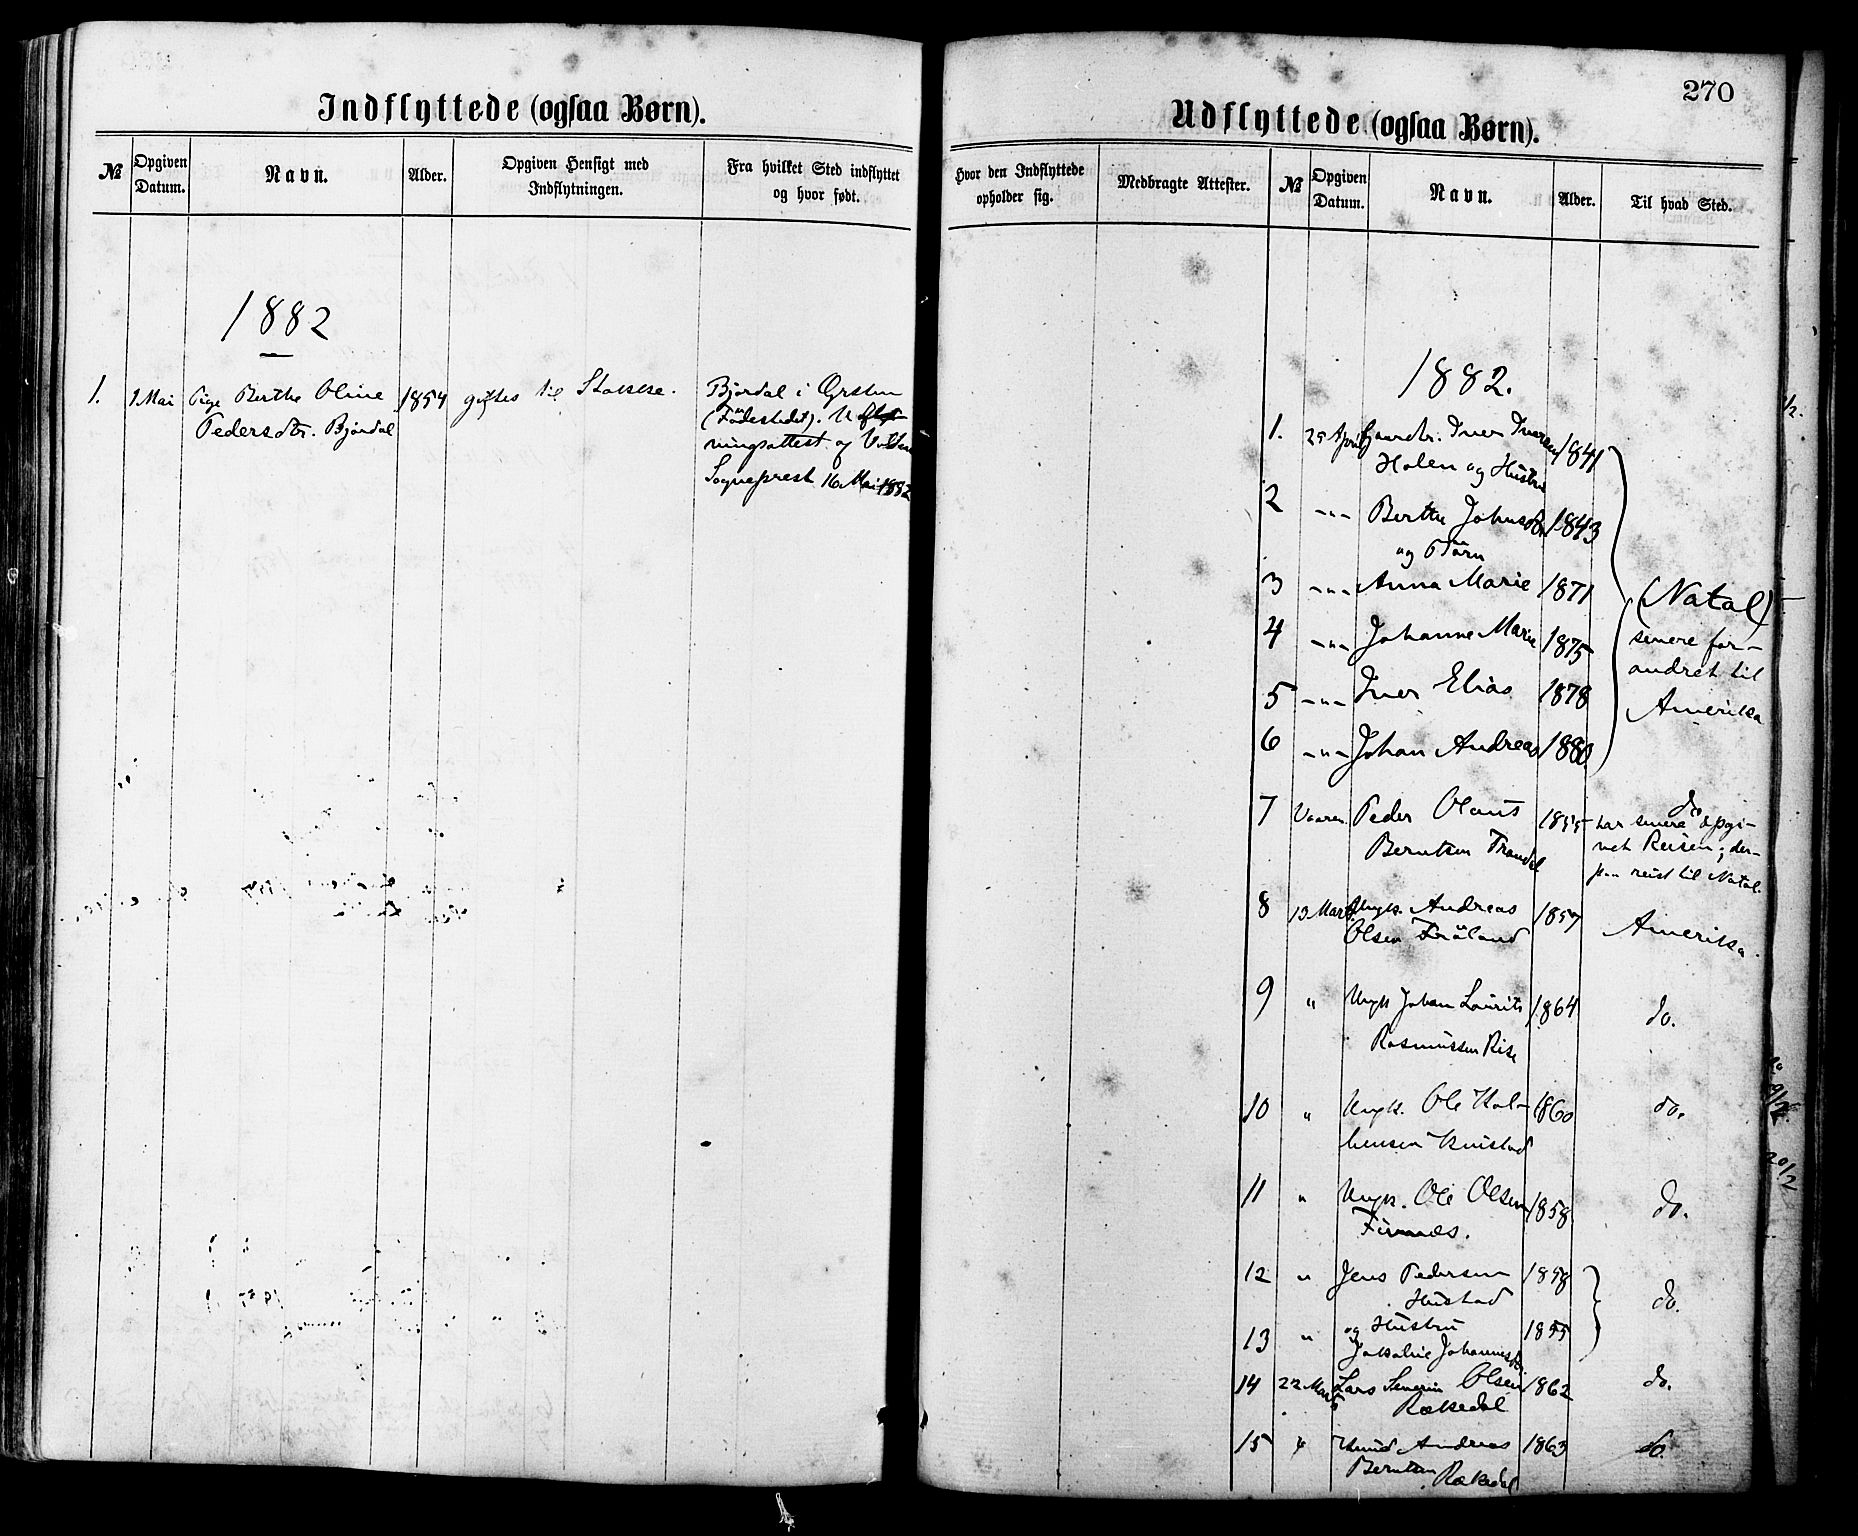 Indflyttede (ogsaa Børn).
№ Opgiven Datum. Navn. Alder. Opgiven Hensigt med Indflytningen. Fra hvilket Sted indflyttet og hvor født.
1882
1. 9 Mai Pige Berthe Oline 1854 giftes til Stokke. Bjørdal i Ørsten
Pedersdtr. Bjørdal (Fødestedet). U
ningsattest og Volden
Sogneprest 16 Mai 1882
270
Udflyttede (ogsaa Børn).
Hvor den Indflyttede opholder sig. Medbragte Attester. № Opgiven Datum. Navn. Alder. Til hvad Sted.
1882.
1. 25 April Gaardbr. Iver Iversen 1841
Holen og Hustru
2 -"- Berthe Johnsdtr 1843
og Börn
3 -"- Anna Marie 1871 (Natal)
4 -"- Johanne Marie 1875 senere for-
andret til
5 -"- Iver Elias 1878 Amerika
6 -"- Johan Andreas 1880
7 Vaaren Peder Olaus 1855 do
Berntsen Trandal har senere opgi-
vet Reisen; der-
paa reist til Natal.
8 13 Marts Ungk. Andreas 1857 Amerika.
Olsen Fröland
9 " Ungk Johan Laurits 1864 do.
Rasmussen Rise
10 " Ungk. Ole Kol- 1860 do.
bensen Knistad
11 " Ungk. Ole Olsen 1858 do.
Finnæs.
12 " Jens Pedersen 1858 do.
Hustad
13 " og Hustru 1855
Jakobine Johannesdtr
14 22 Marts Lars Severin Olsen 1862 do.
Rækedal
15 " Knud Andreas 1863 do.
Berntsen Rækedal